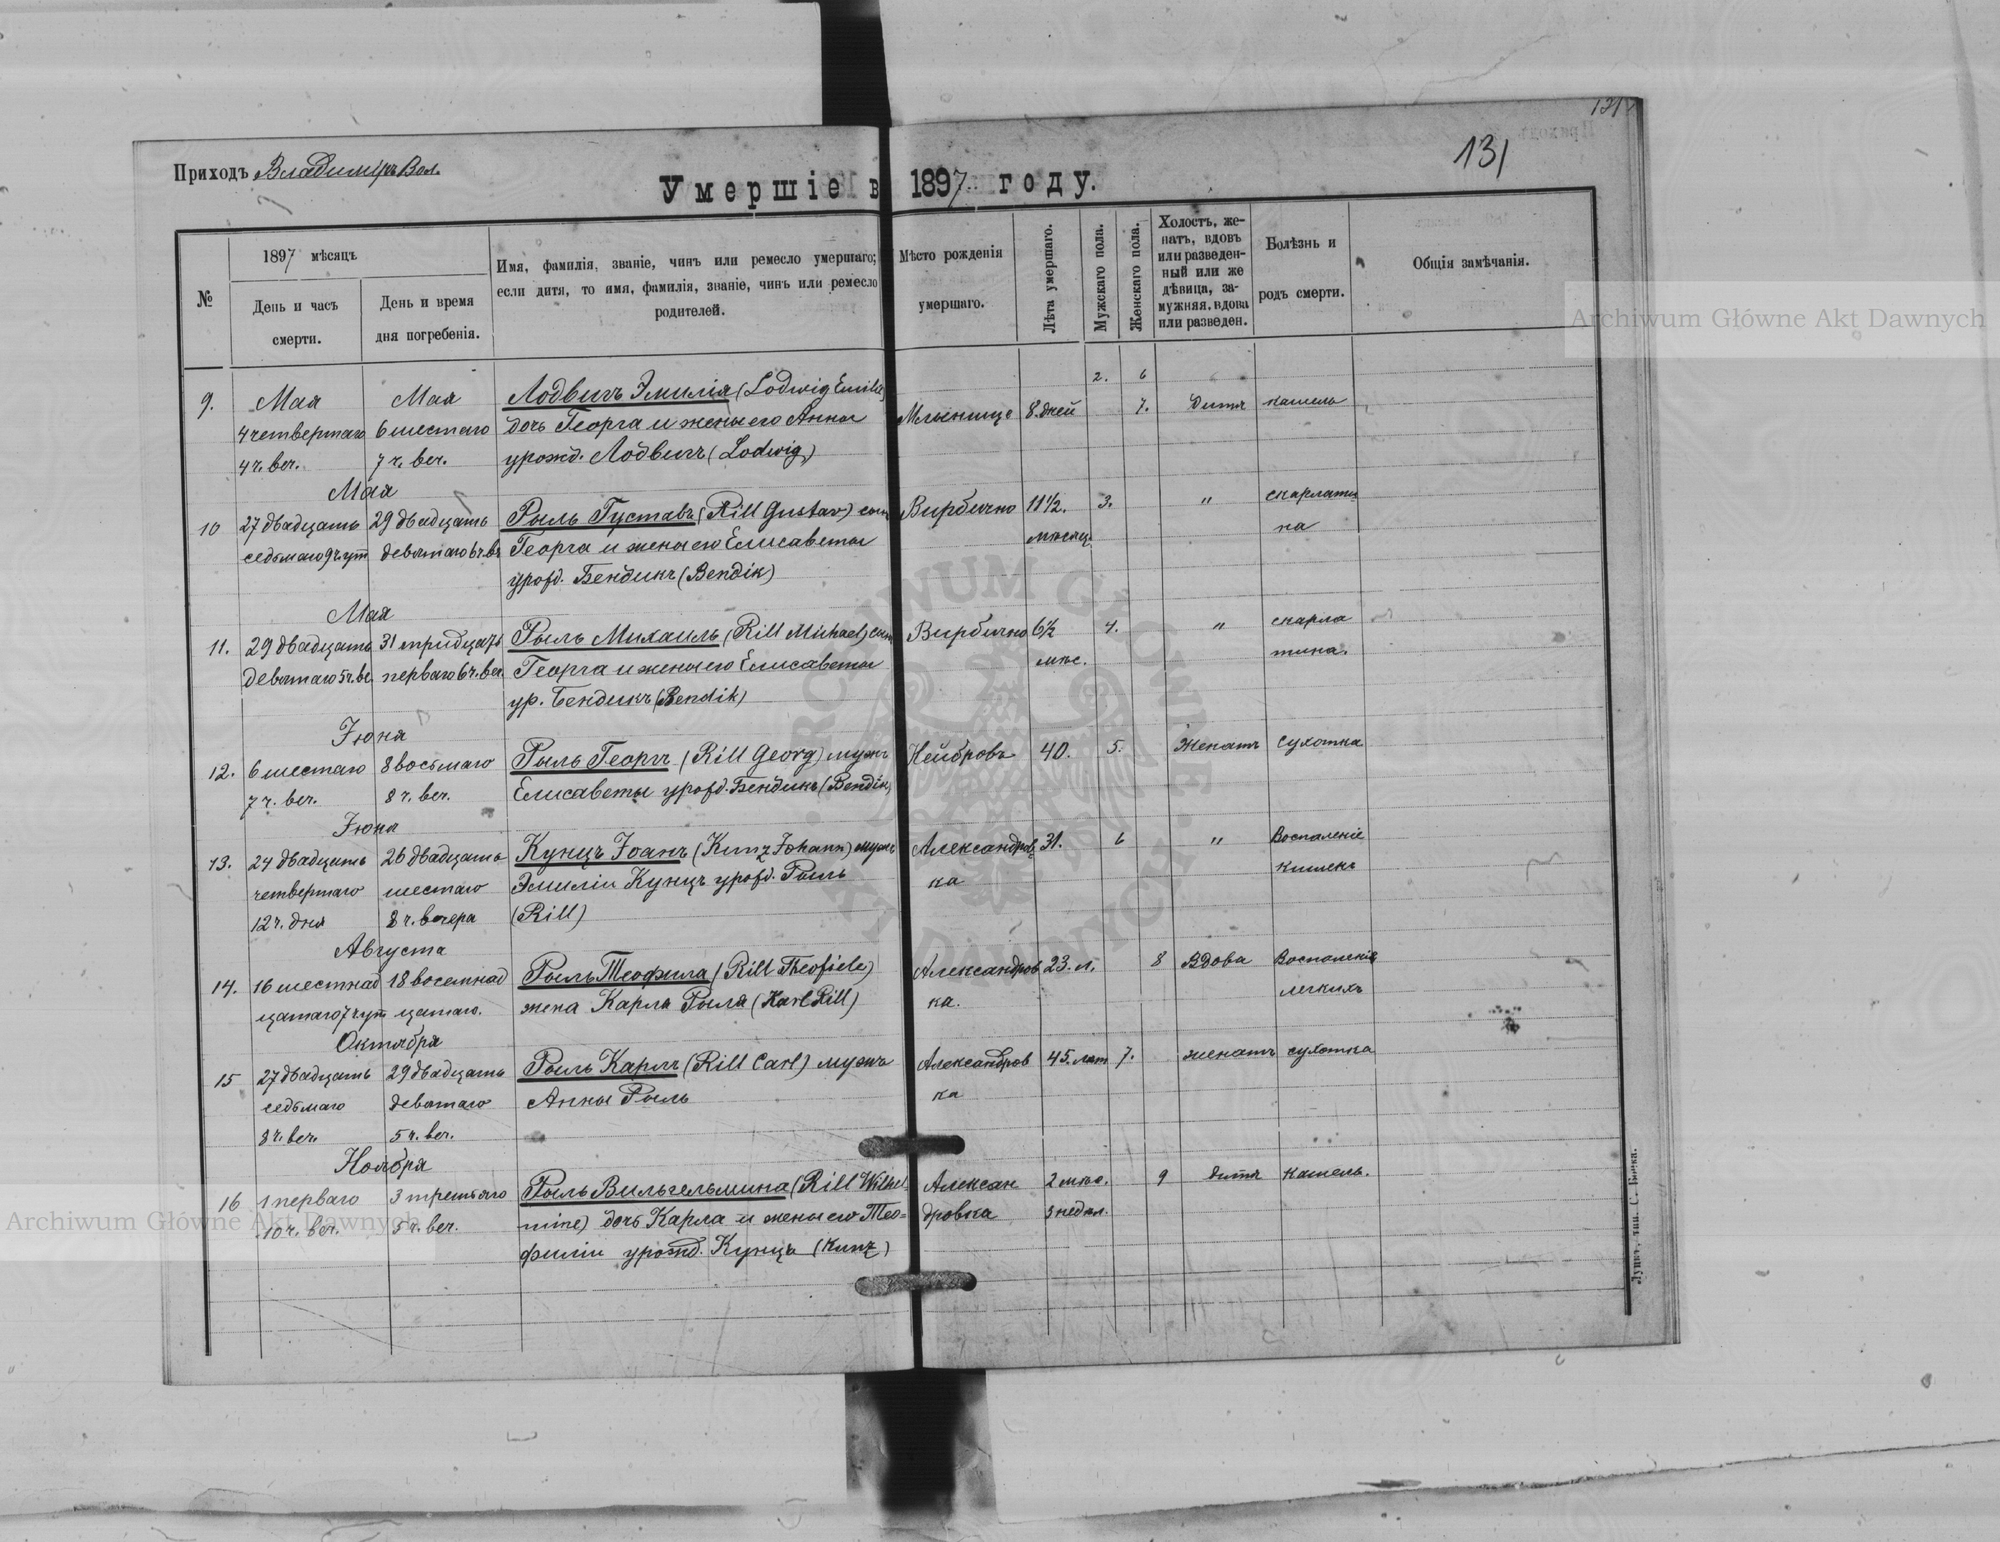 131
131
Приходъ Владимiръ Вол.
Умершiе в 1897 году.
№
1897 мѣсяцъ
День и часъ
смерти.
День и время
дня погребенiя.
Имя, фамилiя, званiе, чинъ или ремесло умершаго;
если дитя, то имя, фамилiя, званiе, чинъ или ремесло
родителей.
Мѣсто рожденiя
умершаго.
Лѣта умершаго.
Мужскаго пола.
Женскаго пола.
Холостъ, же-
натъ, вдовъ
или разведен-
ный или же
дѣвица, за-
мужняя, вдова
или разведен.
Болѣзнь и
родъ смерти.
Общiя замѣчанiя.
2. 6
9. Мая Мая Лодвигъ Эмилiя (Lodwig Emilie) Млыница 8. дней 7. Дитя кашель
4 четвертаго 6 шестаго дочь Георга и жены его Анны
4 ч. веч. 7 ч. веч. урожд. Лодвигъ (Lodwig)
Мая
10 27 двадцать 29 двадцать Рыль Густавъ (Rill Gustav) сынъ Вирбично 11 1/2. 3. " скарлати
седьмаго 9 ч. ут девятаго 6 ч. в Георга и жены его Елисаветы мѣсяц на
урожд. Бендикъ (Bendik)
Мая
11. 29 двадцать 31 тридцать Рыль Михаиль (Rill Michael) сынъ Вирбично 6 1/2 4. " скарла
девятаго 5 ч. ве. перваго 6 ч. веч. Георга и жены его Елисаветы мѣс. тина.
ур. Бендикъ (Bendik)
Iюня
12. 6 шестаго 8 восьмаго Рыль Георгъ (Rill Georg) мужъ Нейбровъ 40. 5. Женатъ сухотка
7 ч. веч. 8 ч. веч. Елисаветы урожд. Бендикъ (Bendik)
Iюня
13. 24 двадцать 26 двадцать Кунцъ Iоанъ (Kunz Johann) мужъ Александров 31. 6 " Воспаленiе
четвертаго шестаго Эмилiи Кунцъ урожд. Рыль ка кишекъ
12 ч. дня 8 ч. вечера (Rill)
Августа
14. 16 шестнад 18 восемнад Рыль Теофила (Rill Theofiele) Александров 23. л. 8 Вдова Воспаленiе
цатаго 7 ч. ут цатаго. жена Карла Рыля (Karl Rill) ка. легкихъ
Октября
15 27 двадцать 29 двадцать Рыль Карлъ (Rill Carl) мужъ Александров 45. лет 7. женатъ сухотка
седьмаго девятаго Анны Рыль ка
8 ч. веч. 5 ч. веч.
Ноября
16 1 перваго 3 третьяго Рыль Вильгельмина (Rill Wilhel Алексан 2 мѣс. 9 дитя кашель.
10 ч. веч. 5 ч. веч. mine) дочь Карла и жены его Тео= дровка 3 недѣл.
филiи урожд. Кунцъ (Kunz)
Луцкъ, тип. С. Бинка.
Archiwum Główne Akt Dawnych
Archiwum Główne Akt Dawnych
ARCHIWUM GŁÓWNE AKT DAWNYCH